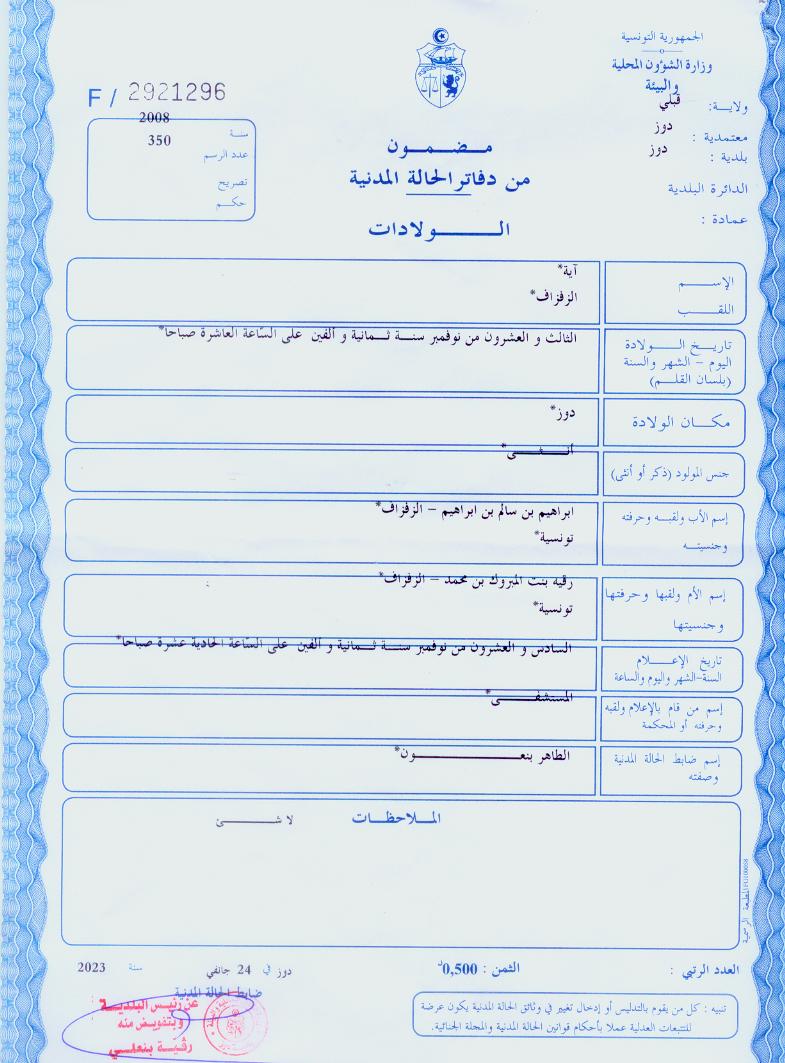 الجمهورية التونسية
وزارة الشؤون المحلية
والبيئة
ولايــة: قبلي
معتمدية : دوز
بلدية : دوز
الدائرة البلدية
عمادة :
F / 2921296
سنة 2008
عدد الرسم 350
تصريح
حكم
مـضـمـــون
من دفاتر الحالة المدنية
الـــولادات
الإســـم آية*
اللقـــب الزفزاف*
تاريـــخ الـــــولادة
اليوم – الشهر والسنة
(بلسان القلـــم)
الثالث و العشرون من نوفمبر سنـــة ثــمانية و ألفين على السّاعة العاشرة صباحا*
مكـــان الولادة دوز*
جنس المولود (ذكر أو أنثى) أنـــثـــى*
إسم الأب ولقبـــه وحرفته
وجنسيتـــه
ابراهيم بن سالم بن ابراهيم – الزفزاف*
تونسية*
إسم الأم ولقبها وحرفتها
وجنسيتها
رقيه بنت المبروك بن محمد – الزفزاف*
تونسية*
تاريخ الإعـــــلام
السنة-الشهر واليوم والساعة
السادس و العشرون من نوفمبر سنـــة ثــمانية و ألفين على السّاعة الحادية عشرة صباحا*
إسم من قام بالإعلام ولقبه
وحرفته أو المحكمة
المستشفـــى*
إسم ضابط الحالة المدنية
وصفته
الطاهر بنعـــــون*
المـلاحظـــات
لا شـــئ
المطبعة الرسمية
العدد الرتبي :
الثمن : 0,500د
دوز في 24 جانفي سنة 2023
ضابط الحالة المدنية
عن رئيس البلدية
وبتفويض منه
رقية بنعلي
تنبيه : كل من يقوم بالتدليس أو إدخال تغيير في وثائق الحالة المدنية يكون عرضة
للتتبعات العدلية عملا بأحكام قوانين الحالة المدنية والمجلة الجنائية.